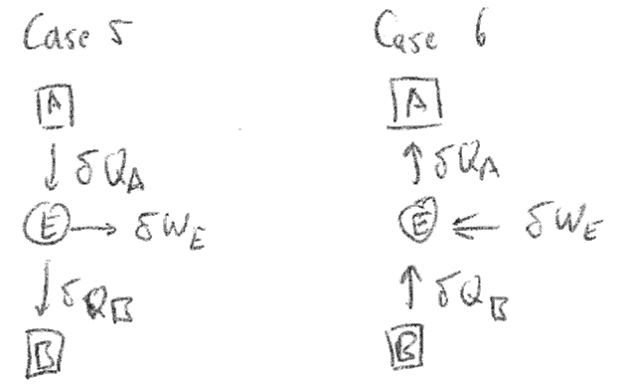 Case 5
A
δQA
E δWE
δQB
B
Case 6
A
δQA
E δWE
δQB
B